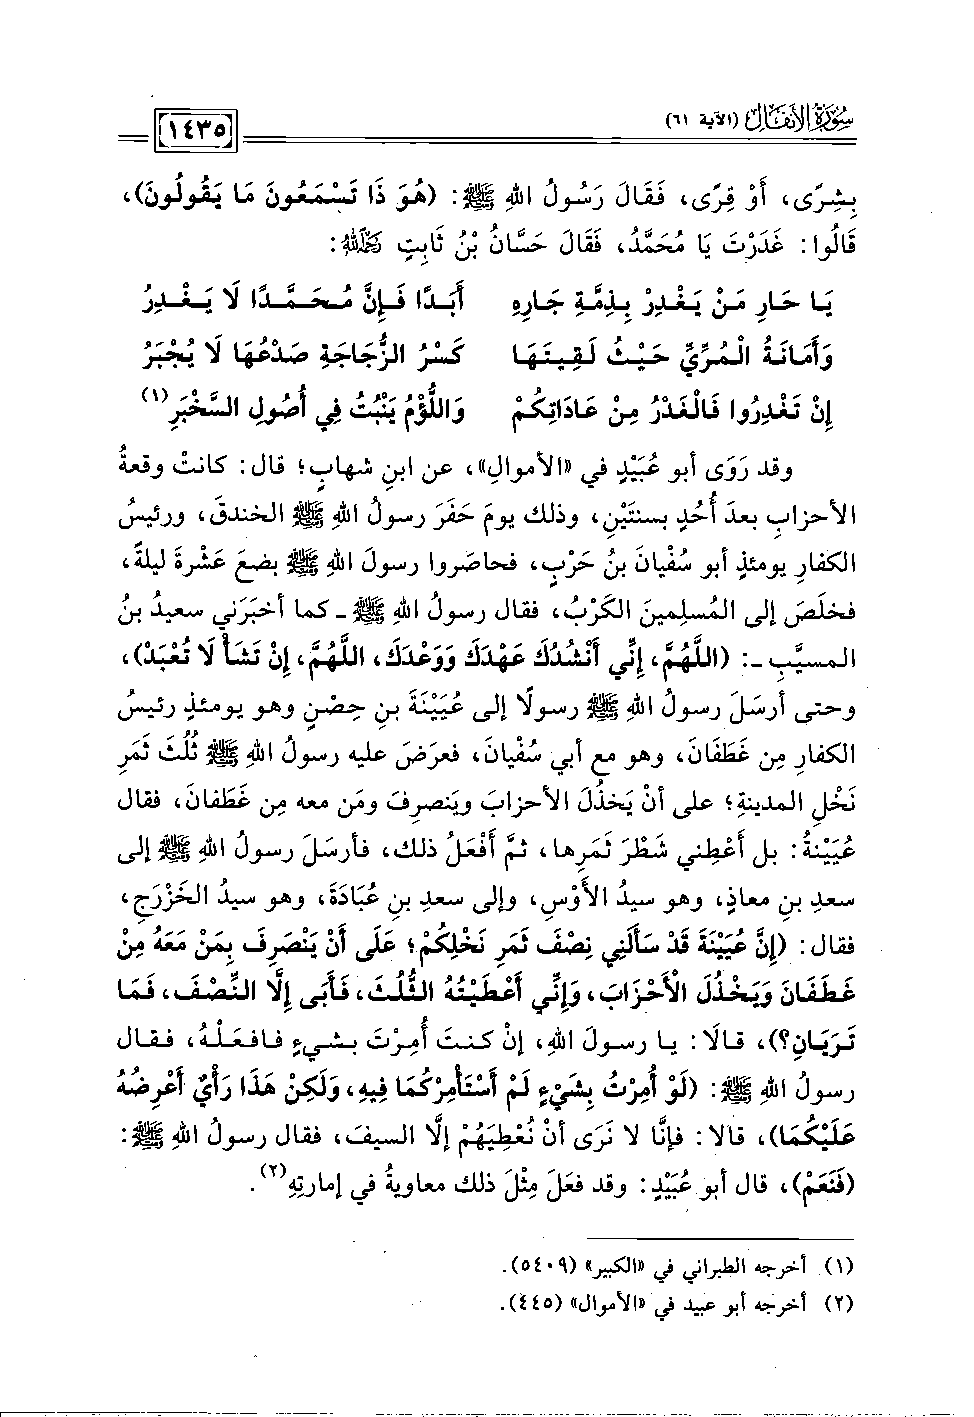 سُورَةُ الأَنفَالِ (الآية ٦١)
١٤٣٥
بِشِرًى، أَوْ قِرًى، فَقَالَ رَسُولُ اللهِ ﷺ: (هُوَ ذَا تَسْمَعُونَ مَا يَقُولُونَ)،
قَالُوا: غَدَرْتَ يَا مُحَمَّدُ، فَقَالَ حَسَّانُ بْنُ ثَابِتٍ رَحِمَهُ اللهُ:
يَا حَارِ مَنْ يَغْدِرْ بِذِمَّةِ جَارِهِ أَبَدًا فَإِنَّ مُحَمَّدًا لَا يَغْدِرُ
وَأَمَانَةُ الْمُرِّيِّ حَيْثُ لَقِيتَهَا كَسْرُ الزُّجَاجَةِ صَدْعُهَا لَا يُجْبَرُ
إِنْ تَغْدِرُوا فَالْغَدْرُ مِنْ عَادَاتِكُمْ وَاللُّؤْمُ يَنْبُتُ فِي أُصُولِ السَّخْبَرِ(١)
وقد رَوَى أبو عُبَيْدٍ في «الأموالِ»، عن ابنِ شهابٍ؛ قال: كانتْ وقعةُ
الأحزابِ بعدَ أُحُدٍ بسنتَيْنِ، وذلك يومَ حَفَرَ رسولُ اللهِ ﷺ الخندقَ، ورئيسُ
الكفارِ يومئذٍ أبو سُفْيانَ بنُ حَرْبٍ، فحاصَروا رسولَ اللهِ ﷺ بضعَ عَشْرةَ ليلةً،
فخلَصَ إلى المُسلِمينَ الكَرْبُ، فقال رسولُ اللهِ ﷺ ـ كما أخبَرَني سعيدُ بنُ
المسيَّبِ ـ: (اللَّهُمَّ، إِنِّي أَنْشُدُكَ عَهْدَكَ وَوَعْدَكَ، اللَّهُمَّ، إِنْ تَشَأْ لَا تُعْبَدْ)،
وحتى أرسَلَ رسولُ اللهِ ﷺ رسولًا إلى عُيَيْنَةَ بنِ حِصْنٍ وهو يومئذٍ رئيسُ
الكفارِ مِن غَطَفَانَ، وهو مع أبي سُفْيانَ، فعرَضَ عليه رسولُ اللهِ ﷺ ثُلُثَ ثَمَرِ
نَخْلِ المدينةِ؛ على أنْ يَخذُلَ الأحزابَ وينصرِفَ ومَن معه مِن غَطَفانَ، فقال
عُيَيْنةُ: بل أَعْطِني شَطْرَ ثَمَرِها، ثمَّ أَفْعَلُ ذلك، فأرسَلَ رسولُ اللهِ ﷺ إلى
سعدِ بنِ معاذٍ، وهو سيدُ الأَوْسِ، وإلى سعدِ بنِ عُبَادَةَ، وهو سيدُ الخَزْرَجِ،
فقال: (إِنَّ عُيَيْنَةَ قَدْ سَأَلَنِي نِصْفَ ثَمَرِ نَخْلِكُمْ؛ عَلَى أَنْ يَنْصَرِفَ بِمَنْ مَعَهُ مِنْ
غَطَفَانَ وَيَخْذُلَ الْأَحْزَابَ، وَإِنِّي أَعْطَيْتُهُ الثُّلُثَ، فَأَبَى إِلَّا النِّصْفَ، فَمَا
تَرَيَانِ؟)، قالَا: يا رسولَ اللهِ، إنْ كنتَ أُمِرْتَ بشيءٍ فافعَلْهُ، فقال
رسولُ اللهِ ﷺ: (لَوْ أُمِرْتُ بِشَيْءٍ لَمْ أَسْتَأْمِرْكُمَا فِيهِ، وَلَكِنْ هَذَا رَأْيٌ أَعْرِضُهُ
عَلَيْكُمَا)، قالا: فإنَّا لا نَرَى أنْ نُعْطِيَهُمْ إلَّا السيفَ، فقال رسولُ اللهِ ﷺ:
(فَنَعَمْ)، قال أبو عُبَيْدٍ: وقد فعَلَ مِثْلَ ذلك معاويةُ في إمارتِهِ(٢).
(١) أخرجه الطبراني في «الكبير» (٥٤٠٩).
(٢) أخرجه أبو عبيد في «الأموال» (٤٤٥).